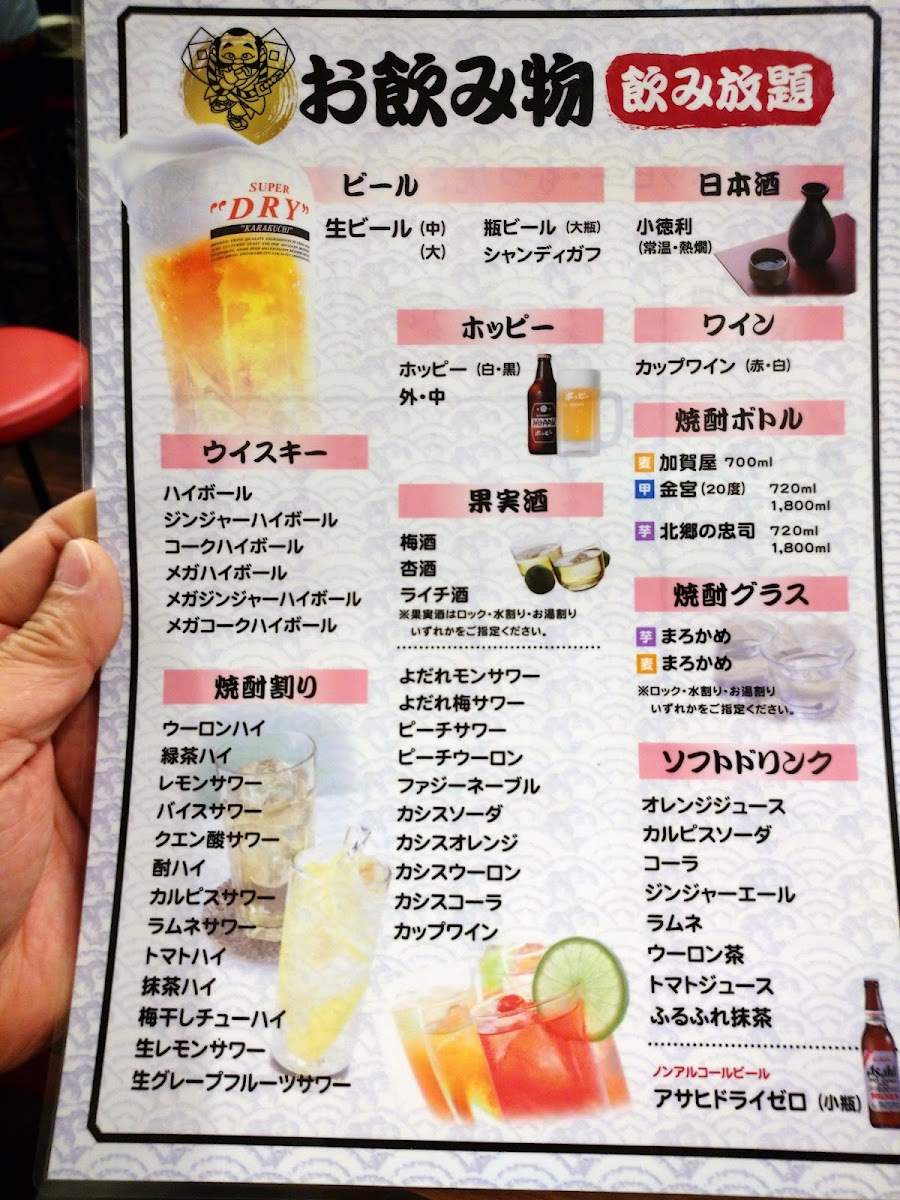 お飲み物
飲み放題
SUPER
"DRY"
"KARAKUCHI"
ビール
生ビール（中）
（大）
瓶ビール（大瓶）
シャンディガフ
日本酒
小徳利
（常温・熱燗）
ホッピー
ホッピー（白・黒）
外・中
ワイン
カップワイン（赤・白）
焼酎ボトル
麦 加賀屋 700ml
甲 金宮（20度） 720ml
1,800ml
芋 北郷の忠司 720ml
1,800ml
ウイスキー
ハイボール
ジンジャーハイボール
コークハイボール
メガハイボール
メガジンジャーハイボール
メガコークハイボール
果実酒
梅酒
杏酒
ライチ酒
※果実酒はロック・水割り・お湯割り
いずれかをご指定ください。
焼酎グラス
芋 まろかめ
麦 まろかめ
※ロック・水割り・お湯割り
いずれかをご指定ください。
焼酎割り
ウーロンハイ
緑茶ハイ
レモンサワー
バイスサワー
クエン酸サワー
酎ハイ
カルピスサワー
ラムネサワー
トマトハイ
抹茶ハイ
梅干しチューハイ
生レモンサワー
生グレープフルーツサワー
よだれモンサワー
よだれ梅サワー
ピーチサワー
ピーチウーロン
ファジーネーブル
カシスソーダ
カシスオレンジ
カシスウーロン
カシスコーラ
カップワイン
ソフトドリンク
オレンジジュース
カルピスソーダ
コーラ
ジンジャーエール
ラムネ
ウーロン茶
トマトジュース
ふるふれ抹茶
ノンアルコールビール
アサヒドライゼロ（小瓶）